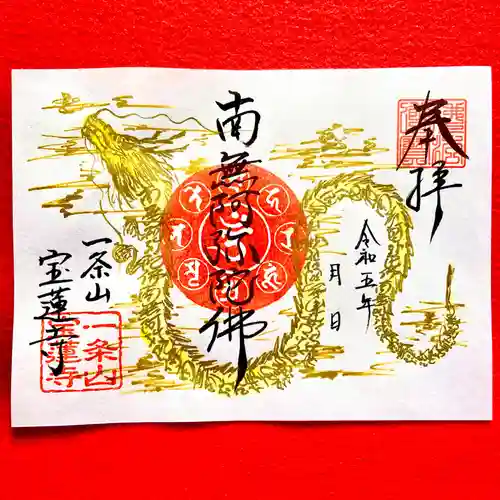 奉拝
令和五年
月 日
南無阿弥陀佛
一条山
宝蓮寺
一条山
宝蓮寺